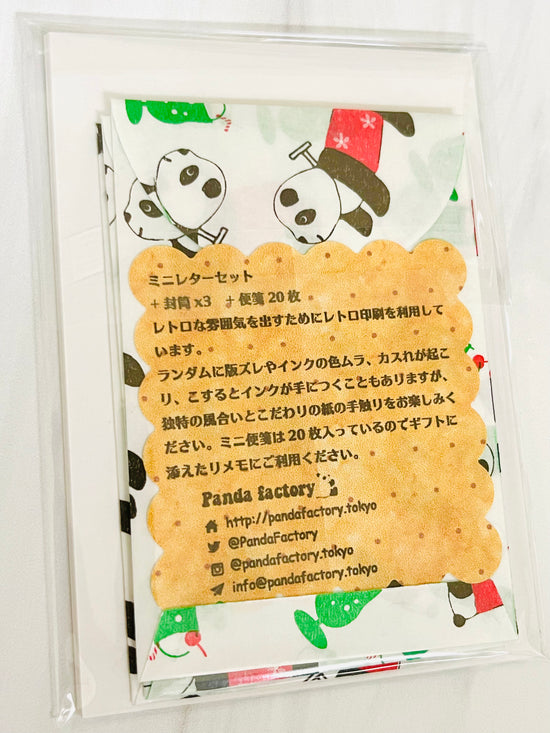 ミニレターセット
+ 封筒 x3 + 便箋 20 枚
レトロな雰囲気を出すためにレトロ印刷を利用して
います。
ランダムに版ズレやインクの色ムラ、カスれが起こ
り、こするとインクが手につくこともありますが、
独特の風合いとこだわりの紙の手触りをお楽しみく
ださい。ミニ便箋は 20 枚入っているのでギフトに
添えたりメモにご利用ください。
Panda factory
http://pandafactory.tokyo
@PandaFactory
@pandafactory.tokyo
info@pandafactory.tokyo